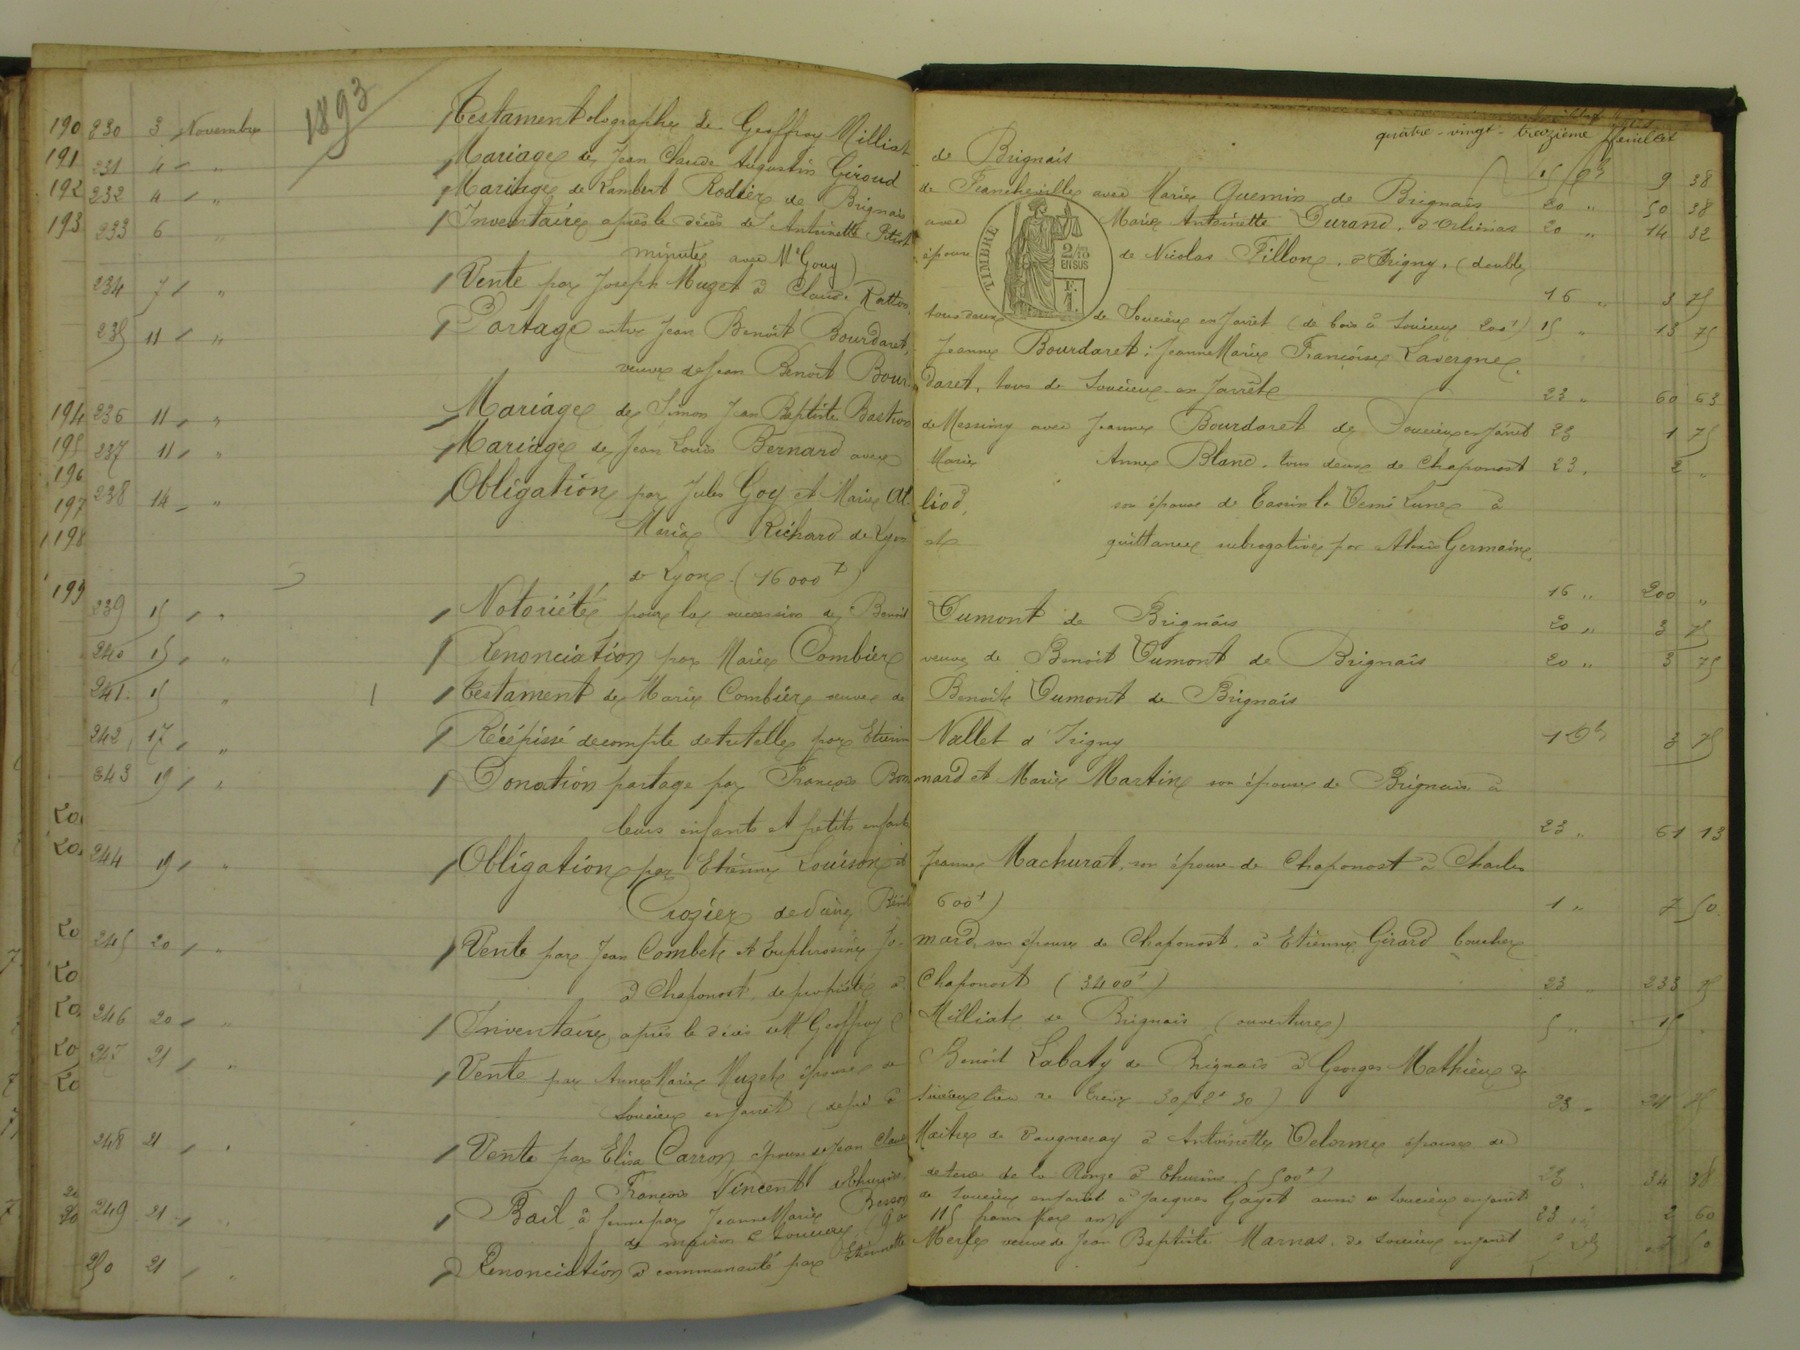 1893
quatre-vingt-treizième feuillet
190 230 3 Novembre Testament olographe de Geoffroy Milliat de Brignais 9 38
191 231 4 " Mariage de Jean Claude Augustin Giroud de Francheville avec Marie Quemin de Brignais 20 " 50 38
192 232 4 " Mariage de Lambert Rodier de Brignais avec Marie Antoinette Durand, d'Orliénas 20 " 14 32
193 233 6 " Inventaire après le décès de Antoinette épouse de Nicolas Fillon, d'Irigny, (double
minute avec Me Gouy) 16 " 3 75
TIMBRE
2/10
EN SUS
234 7 " Vente par Joseph Muzet à Claude tous deux de Soucieu en Jarret (de bois à Soucieu 200f) 15 " 13 75
235 11 " Partage entre Jean Benoît Bourdaret, Jeanne Bourdaret; Jeanne Marie Françoise Lavergne,
veuve de Jean Benoît Bourdaret, tous de Soucieu en Jarret 23 " 60 63
194 236 11 " Mariage de Simon Jean Baptiste Bastion de Messimy avec Jeanne Bourdaret de Soucieu en Jarret 23 1 75
195 237 11 " Mariage de Jean Louis Bernard avec Marie Anne Blanc, tous deux de Chaponost 23 " 2 "
196
197 238 14 " Obligation par Jules Goy et Marie Alliod, son épouse de Tassin la Demi Lune à
198 Maria Richard de Lyon et quittance subrogative par Germain
de Lyon (16000f) 16 " 200 "
199 239 15 " Notoriété pour la succession de Benoit Dumont de Brignais 20 " 3 75
240 15 " Renonciation par Marie Combier veuve de Benoit Dumont de Brignais 20 " 3 75
241 15 " Testament de Marie Combier veuve de Benoit Dumont de Brignais
242 17 " Récépissé de compte de tutelle par Etienne Nallet d'Irigny 1 Db 3 75
243 19 " Donation partage par François Bonnard et Marie Martin son épouse de Brignais à
leurs enfants et petits enfants 23 " 61 13
244 19 " Obligation par Etienne Louison et Jeanne Machurat, son épouse de Chaponost à Charles
Crozier de 600f) 1 " 7 50
245 20 " Vente par Jean Combet et Euphrosine Jomard, son épouse de Chaponost, à Etienne Girard boucher
à Chaponost, de propriété à Chaponost (3400f) 23 " 233 75
246 20 " Inventaire après le décès de M Geoffroy Milliat de Brignais (ouverture) 5 " 15
247 21 " Vente par Anne Marie Muzet épouse de Benoit Labaty de Brignais à Georges Mathieu de
Soucieu en Jarret (de pré à Soucieu lieu de 23 " 24
248 21 " Vente par Elisa Carron épouse de Jean Claude Maitre de Vaugneray à Antoinette Delorme épouse de
François Vincent de Thurins, de terre de la Ronze à Thurins (500f) 23 34 38
249 21 " Bail à ferme par Jeanne Marie Besson de Soucieu en Jarret à Jacques Gayet aussi de Soucieu en Jarret
de maison à Soucieu 115 francs par an) 23 2 60
250 21 " Renonciation à communauté par Etiennette veuve de Jean Baptiste Marnas, de Soucieu en Jarret 50